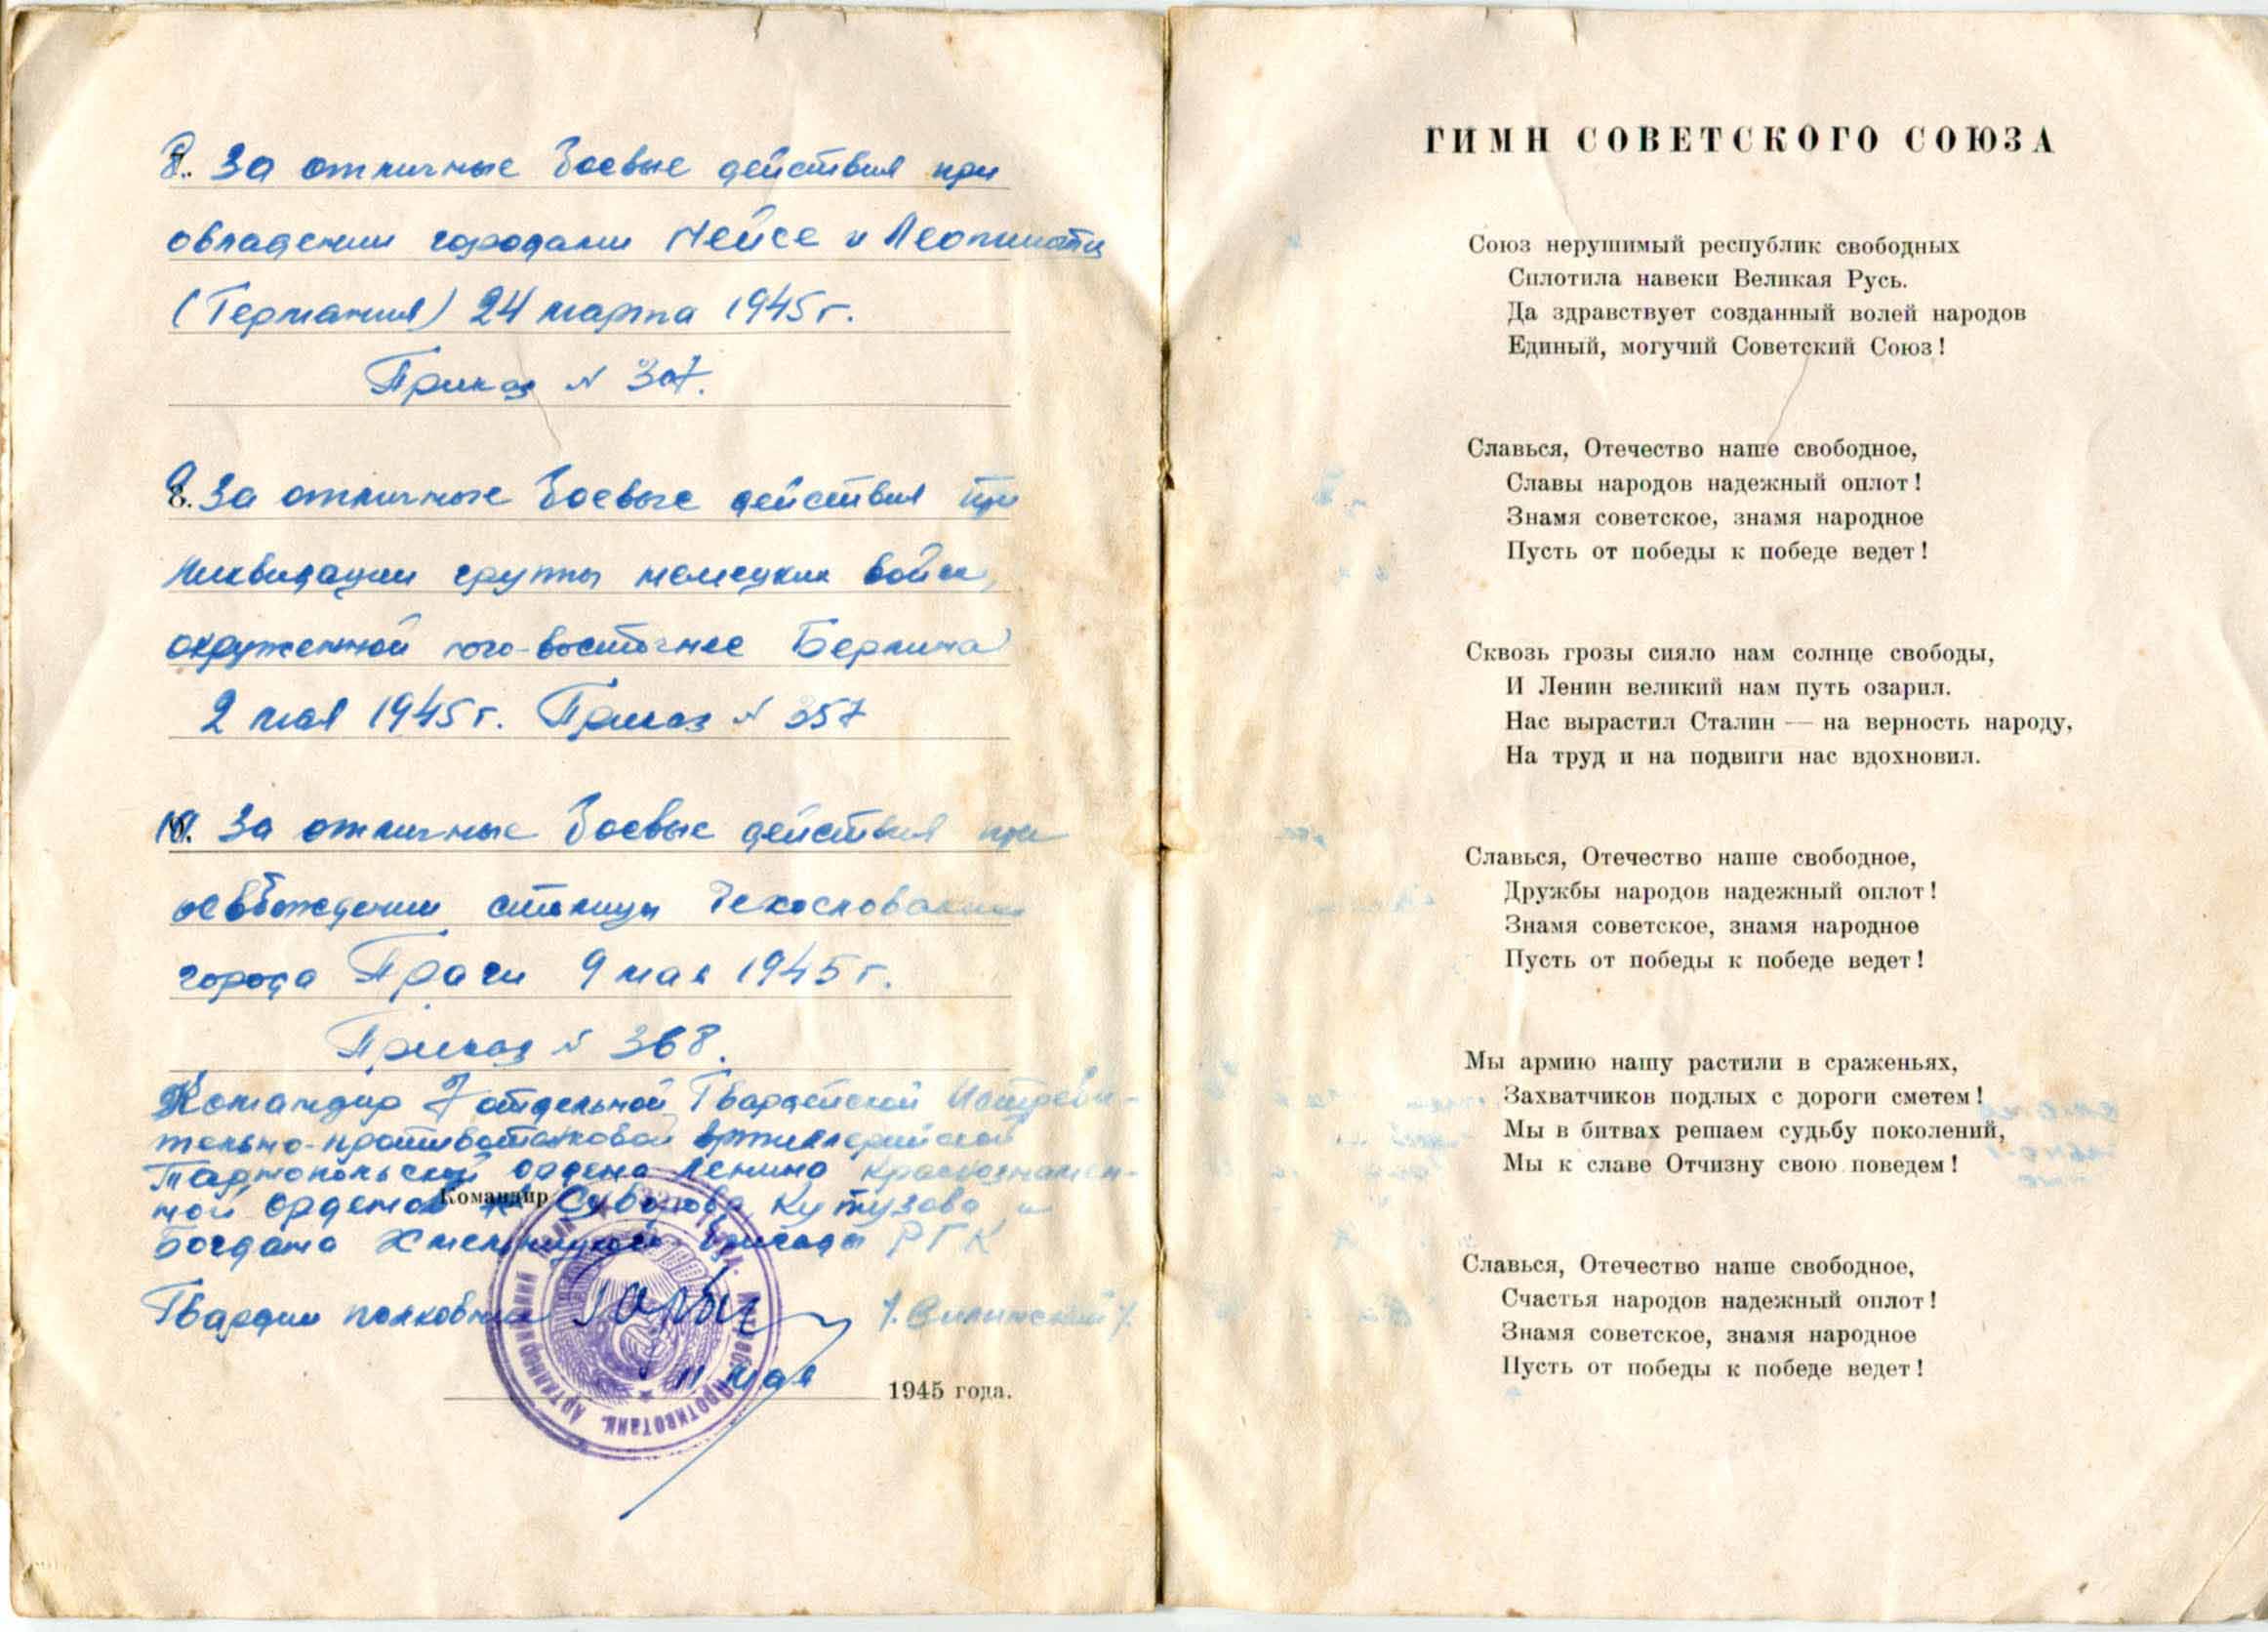 8. За отличные боевые действия при
овладении городами Нейсе и Леопшютц
(Германия) 24 марта 1945 г.
Приказ № 307.
9. За отличные боевые действия при
ликвидации группы немецких войск,
окруженной юго-восточнее Берлина
2 мая 1945 г. Приказ № 357
10. За отличные боевые действия при
освобождении столицы Чехословакии
города Праги 9 мая 1945 г.
Приказ № 368.
Командир 7 отдельной Гвардейской Истреби-
тельно-противотанковой артиллерийской
Тарнопольской ордена Ленина Краснознамен-
ной орденов Суворова, Кутузова и
Богдана Хмельницкого бригады РГК
Командир
Гвардии полковник
11 мая 1945 года.
ГИМН СОВЕТСКОГО СОЮЗА
Союз нерушимый республик свободных
Сплотила навеки Великая Русь.
Да здравствует созданный волей народов
Единый, могучий Советский Союз!
Славься, Отечество наше свободное,
Славы народов надежный оплот!
Знамя советское, знамя народное
Пусть от победы к победе ведет!
Сквозь грозы сияло нам солнце свободы,
И Ленин великий нам путь озарил.
Нас вырастил Сталин — на верность народу,
На труд и на подвиги нас вдохновил.
Славься, Отечество наше свободное,
Дружбы народов надежный оплот!
Знамя советское, знамя народное
Пусть от победы к победе ведет!
Мы армию нашу растили в сраженьях,
Захватчиков подлых с дороги сметем!
Мы в битвах решаем судьбу поколений,
Мы к славе Отчизну свою поведем!
Славься, Отечество наше свободное,
Счастья народов надежный оплот!
Знамя советское, знамя народное
Пусть от победы к победе ведет!